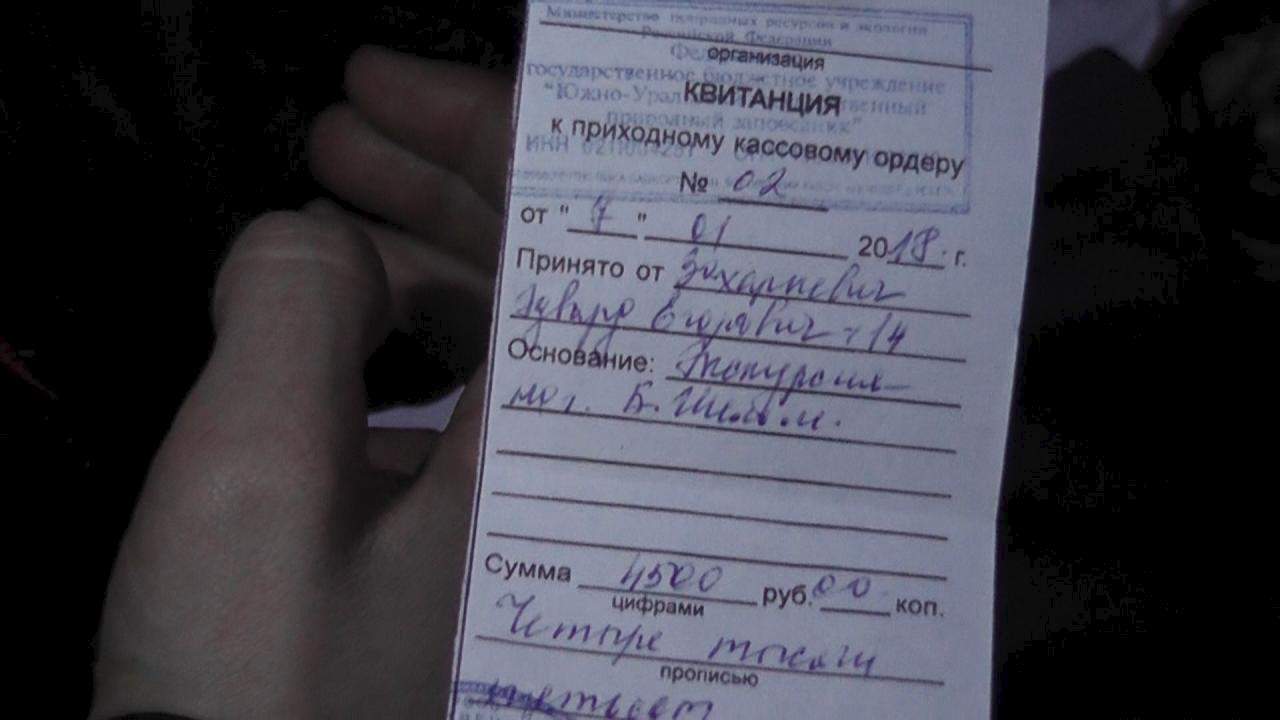 Министерство природных ресурсов и экологии
Российской Федерации
организация
государственное бюджетное учреждение
КВИТАНЦИЯ
природный заповедник"
к приходному кассовому ордеру
ИНН
№ 02
от "7" 01 2018 г.
Принято от Захаркевич
Эдуард Егорович + 14
Основание: Экскурсия
на г. Б. Шелом.
Сумма 4500 руб. 00 коп.
цифрами
Четыре тысячи
прописью